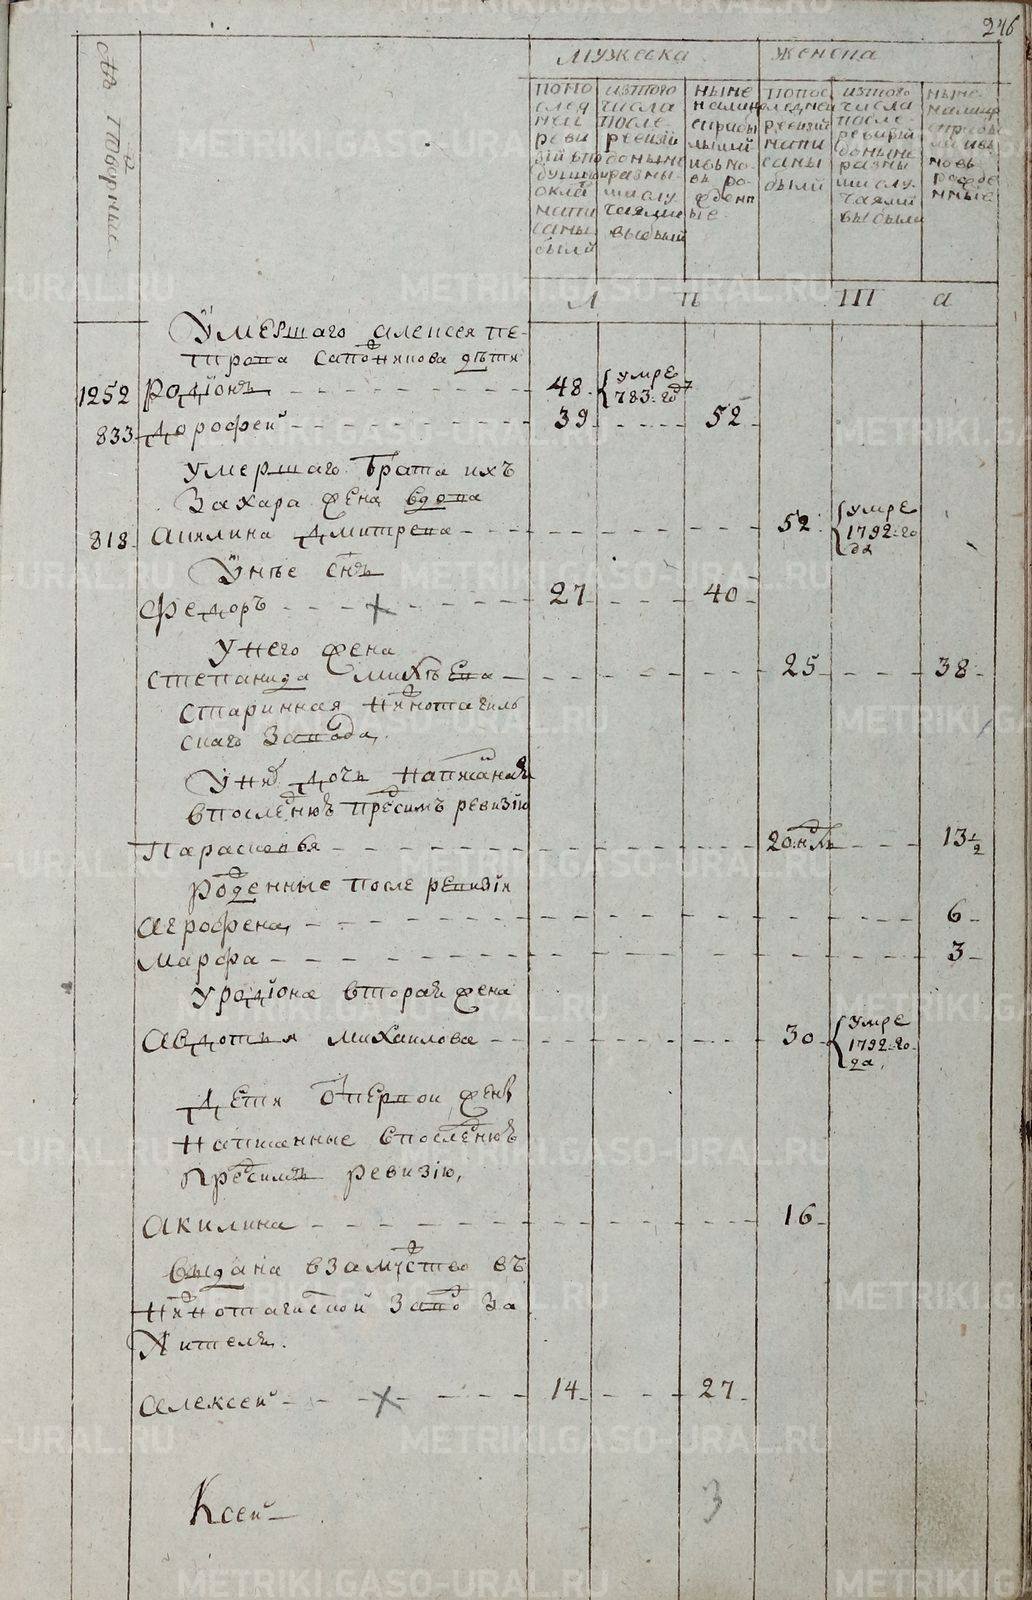 246
Мужеска
Женска
по по
след
ней
реви
зіи въ по
душны
окла
напи
саны
были
изтого
числа
после
ревизіи
доныне
разны
ми слу
чаями
выбыли
ныне
налицо
сприбы
лыми
ивьно
вь ро
жденн
ые
попос
ледней
ревизіи
напи
саны
были
изтого
числа
после
ревизіи
доныне
разны
ми слу
чаями
выбыли
ныне
налице
сприбы
лми ивь
новь
рожде
нные
Л
ѣ
т
а
Умершаго алексея пе-
трова сапожникова дѣти
1252 родіонъ 48 умре
783: год
833 дорофеи 39 52
умершаго брата ихъ
Захара жена вдова
818 акилина дмитрева 52 умре
1792: го
да
Унѣе снъ
федоръ 27 40
Унего жена
степанида михѣева 25 38
старинная нижнотагиль
скаго завода,
Уних дочь написаная
впоследнюю пред симъ ревизію
Парасковья 20 нд҃ль 13 1/2
рожденные после ревизіи
агрофена, 6
марфа 3
Уродіона вторая жена
авдотья михаилова 30 умре
1792: го
да,
дети отпервои жены
написанные впоследнюю
предсимъ ревизію,
акилина 16
выдана взамужство въ
нижнотагилской завод за
жителя.
алексеи 14 27
Ксеи
3